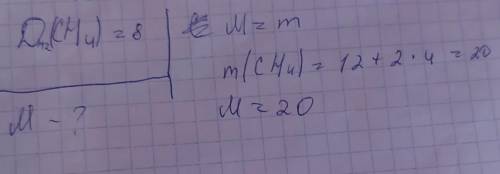 D(CH₄) = 8
M - ?
M = m
m(CH₄) = 12 + 2 · 4 = 20
M = 20